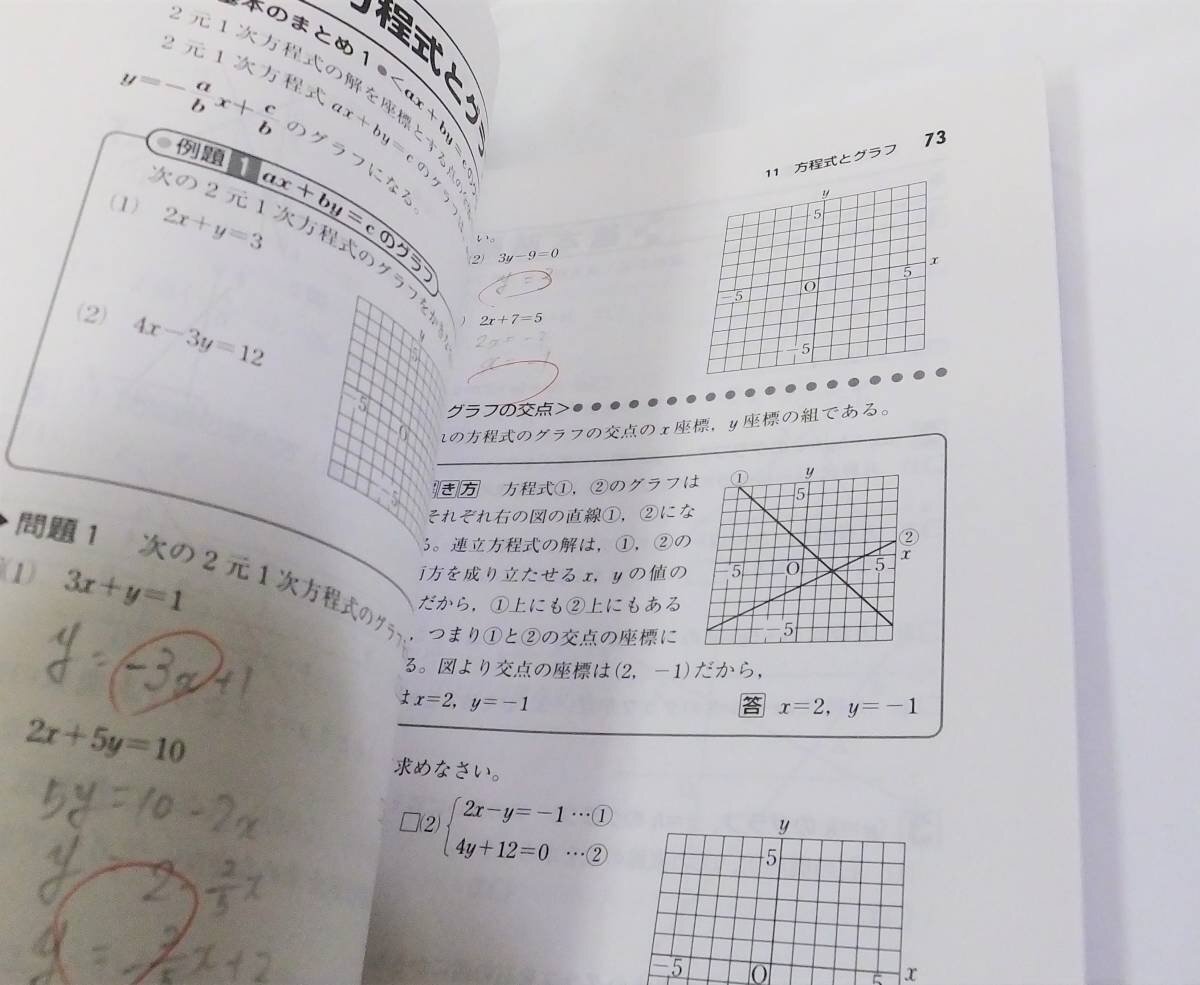 方程式とグラ
基本のまとめ1●<ax+by=cの
2元1次方程式の解を座標とする点の
2元1次方程式 ax+by=cのグラフは
y=-a/b x+c/b のグラフになる。
●例題1 ax+by=cのグラフ
次の2元1次方程式のグラフをかきな
(1) 2x+y=3
(2) 4x-3y=12
y
5
-5
O
-5
問題1 次の2元1次方程式のグラフ
(1) 3x+y=1
y=-3x+1
2x+5y=10
5y=10-2x
y 2-2/5x
y=-2/5x+2
11 方程式とグラフ 73
い。
(2) 3y-9=0
y=3
) 2x+7=5
2x=-2
y
5
-5
O
5
x
-5
グラフの交点>
れの方程式のグラフの交点のx座標,y座標の組である。
き方 方程式①,②のグラフは
それぞれ右の図の直線①,②にな
る。連立方程式の解は,①,②の
方を成り立たせるx,yの値の
だから,①上にも②上にもある
,つまり①と②の交点の座標に
る。図より交点の座標は(2,-1)だから,
はx=2,y=-1
答 x=2,y=-1
①
y
5
②
x
-5
O
5
-5
求めなさい。
□(2) {2x-y=-1…①
4y+12=0 …②
y
5
-5
O
5
x